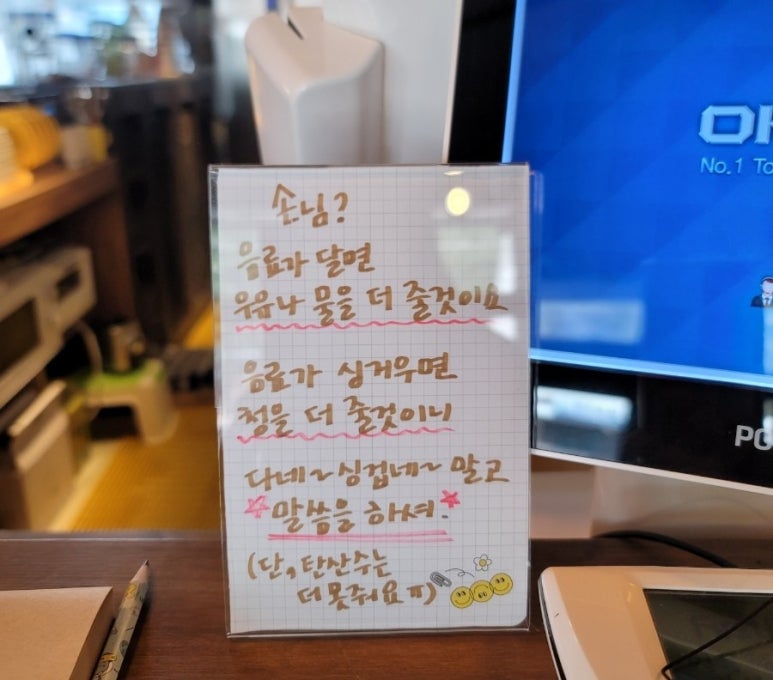 손님?
음료가 달면
우유나 물을 더 줄것이요
음료가 싱거우면
청을 더 줄것이니
다네~싱겁네~ 말고
☆말씀을 하셔.☆
(단, 탄산수는
더 못줘요ㅠ)
No.1 To
PO